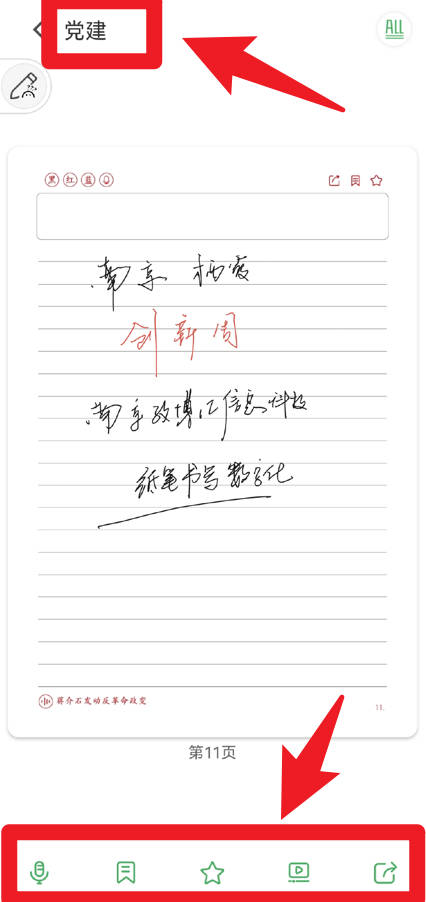 党建
ALL
黑 红 蓝
南京 栖霞
创新周
南京政博汇信息科技
纸笔书写数字化
蒋介石发动反革命政变
11.
第11页